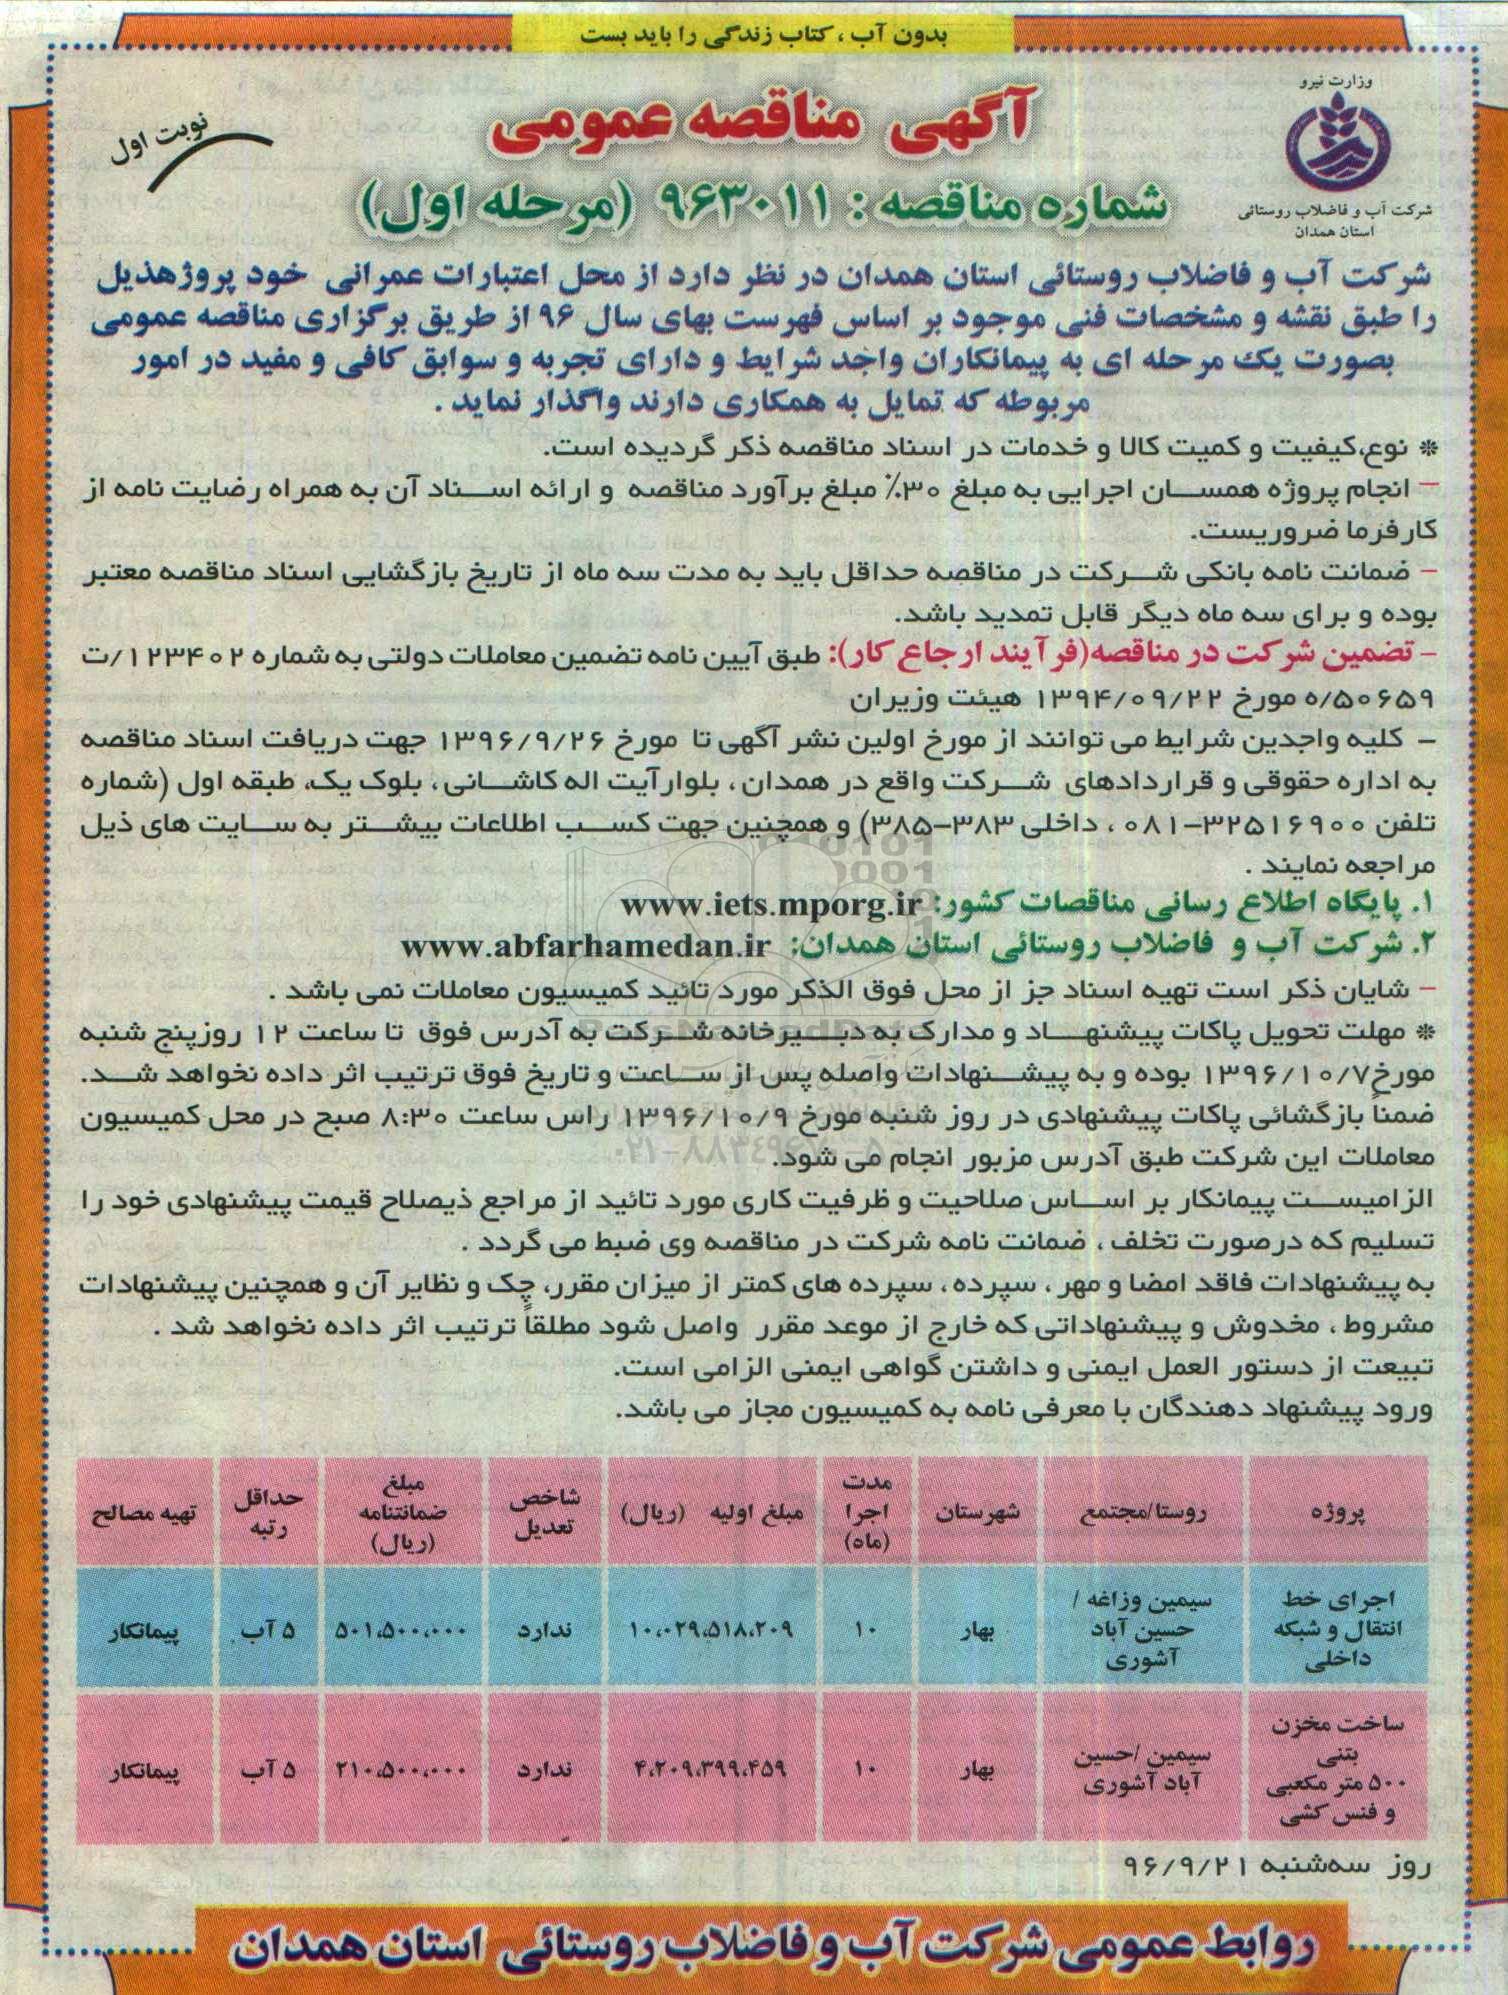 بدون آب ، کتاب زندگی را باید بست
وزارت نیرو
شرکت آب و فاضلاب روستائی
استان همدان
نوبت اول
آگهی مناقصه عمومی
شماره مناقصه : ۹۶۳۰۱۱ (مرحله اول)
شرکت آب و فاضلاب روستائی استان همدان در نظر دارد از محل اعتبارات عمرانی خود پروژهذیل
را طبق نقشه و مشخصات فنی موجود بر اساس فهرست بهای سال ۹۶ از طریق برگزاری مناقصه عمومی
بصورت یک مرحله ای به پیمانکاران واجد شرایط و دارای تجربه و سوابق کافی و مفید در امور
مربوطه که تمایل به همکاری دارند واگذار نماید .
* نوع،کیفیت و کمیت کالا و خدمات در اسناد مناقصه ذکر گردیده است.
– انجام پروژه همسان اجرایی به مبلغ ۳۰٪ مبلغ برآورد مناقصه و ارائه اسناد آن به همراه رضایت نامه از
کارفرما ضروریست.
– ضمانت نامه بانکی شرکت در مناقصه حداقل باید به مدت سه ماه از تاریخ بازگشایی اسناد مناقصه معتبر
بوده و برای سه ماه دیگر قابل تمدید باشد.
– تضمین شرکت در مناقصه(فرآیند ارجاع کار): طبق آیین نامه تضمین معاملات دولتی به شماره ۱۲۳۴۰۲/ت
۵۰۶۵۹/ه مورخ ۱۳۹۴/۰۹/۲۲ هیئت وزیران
– کلیه واجدین شرایط می توانند از مورخ اولین نشر آگهی تا مورخ ۱۳۹۶/۹/۲۶ جهت دریافت اسناد مناقصه
به اداره حقوقی و قراردادهای شرکت واقع در همدان ، بلوارآیت اله کاشانی ، بلوک یک، طبقه اول (شماره
تلفن ۳۲۵۱۶۹۰۰-۰۸۱ ، داخلی ۳۸۳-۳۸۵) و همچنین جهت کسب اطلاعات بیشتر به سایت های ذیل
مراجعه نمایند .
۱. پایگاه اطلاع رسانی مناقصات کشور: www.iets.mporg.ir
۲. شرکت آب و فاضلاب روستائی استان همدان: www.abfarhamedan.ir
– شایان ذکر است تهیه اسناد جز از محل فوق الذکر مورد تائید کمیسیون معاملات نمی باشد .
* مهلت تحویل پاکات پیشنهاد و مدارک به دبیرخانه شرکت به آدرس فوق تا ساعت ۱۲ روزپنج شنبه
مورخ۱۳۹۶/۱۰/۷ بوده و به پیشنهادات واصله پس از ساعت و تاریخ فوق ترتیب اثر داده نخواهد شد.
ضمناً بازگشائی پاکات پیشنهادی در روز شنبه مورخ ۱۳۹۶/۱۰/۹ راس ساعت ۸:۳۰ صبح در محل کمیسیون
معاملات این شرکت طبق آدرس مزبور انجام می شود.
الزامیست پیمانکار بر اساس صلاحیت و ظرفیت کاری مورد تائید از مراجع ذیصلاح قیمت پیشنهادی خود را
تسلیم که درصورت تخلف ، ضمانت نامه شرکت در مناقصه وی ضبط می گردد .
به پیشنهادات فاقد امضا و مهر ، سپرده ، سپرده های کمتر از میزان مقرر، چک و نظایر آن و همچنین پیشنهادات
مشروط ، مخدوش و پیشنهاداتی که خارج از موعد مقرر واصل شود مطلقاً ترتیب اثر داده نخواهد شد .
تبیعت از دستور العمل ایمنی و داشتن گواهی ایمنی الزامی است.
ورود پیشنهاد دهندگان با معرفی نامه به کمیسیون مجاز می باشد.
پروژه | روستا/مجتمع | شهرستان | مدت اجرا (ماه) | مبلغ اولیه (ریال) | شاخص تعدیل | مبلغ ضمانتنامه (ریال) | حداقل رتبه | تهیه مصالح
اجرای خط انتقال و شبکه داخلی | سیمین وزاغه / حسین آباد آشوری | بهار | ۱۰ | ۱۰،۰۲۹،۵۱۸،۲۰۹ | ندارد | ۵۰۱،۵۰۰،۰۰۰ | ۵ آب | پیمانکار
ساخت مخزن بتنی ۵۰۰ متر مکعبی و فنس کشی | سیمین /حسین آباد آشوری | بهار | ۱۰ | ۴،۲۰۹،۳۹۹،۴۵۹ | ندارد | ۲۱۰،۵۰۰،۰۰۰ | ۵ آب | پیمانکار
روز سه‌شنبه ۹۶/۹/۲۱
روابط عمومی شرکت آب و فاضلاب روستائی استان همدان